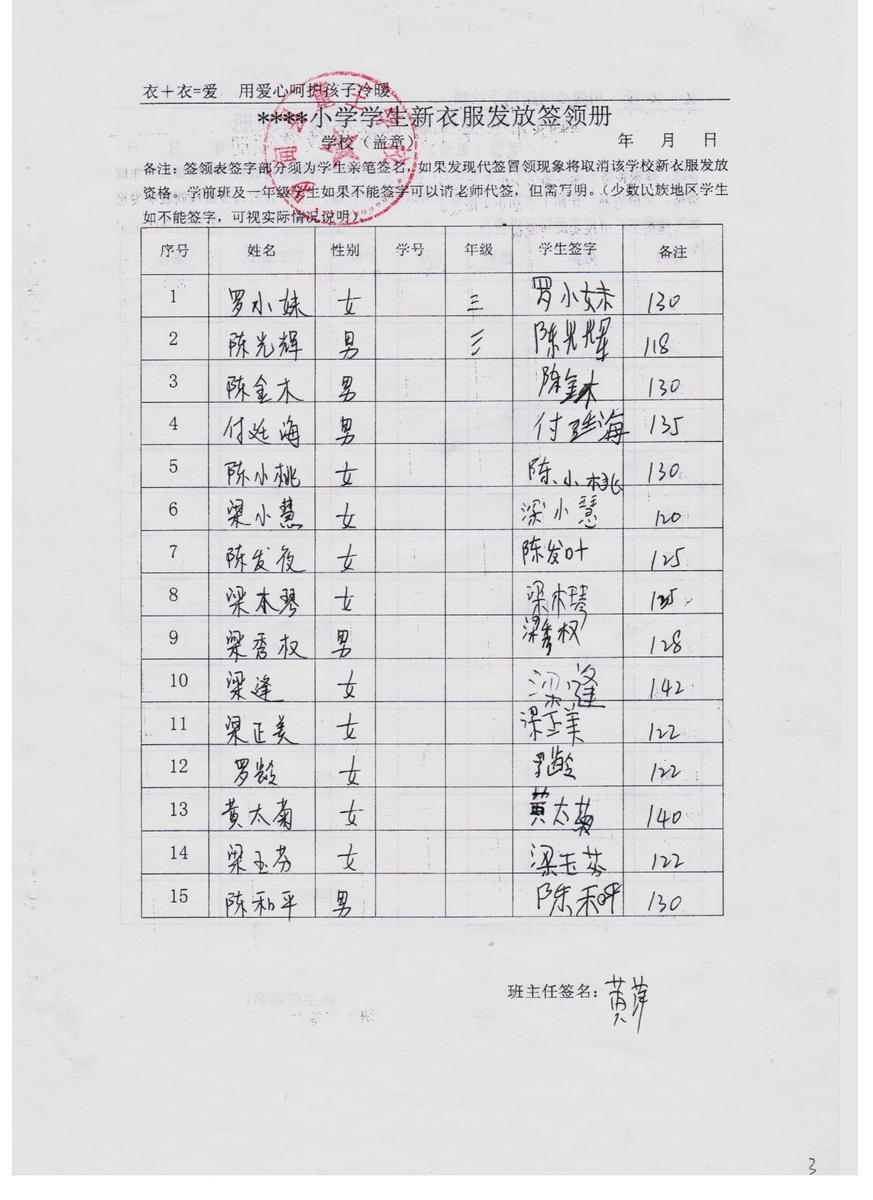 衣＋衣=爱 用爱心呵护孩子冷暖
****小学学生新衣服发放签领册
学校（盖章） 年 月 日
备注：签领表签字部分须为学生亲笔签名，如果发现代签冒领现象将取消该学校新衣服发放
资格。学前班及一年级学生如果不能签字可以请老师代签，但需写明。（少数民族地区学生
如不能签字，可视实际情况说明）
序号 姓名 性别 学号 年级 学生签字 备注
1 罗小妹 女 三 罗小妹 130
2 陈光辉 男 三 陈光辉 118
3 陈金木 男 陈金木 130
4 付廷海 男 付廷海 135
5 陈小桃 女 陈小桃 130
6 梁小慧 女 梁小慧 120
7 陈发夜 女 陈发叶 125
8 梁本琴 女 梁木琴 125
9 梁秀权 男 梁秀权 128
10 梁逢 女 梁缝 142
11 梁正美 女 梁正美 122
12 罗龄 女 罗龄 122
13 黄太菊 女 黄太菊 140
14 梁玉芬 女 梁玉芬 122
15 陈和平 男 陈和平 130
班主任签名：黄萍
3